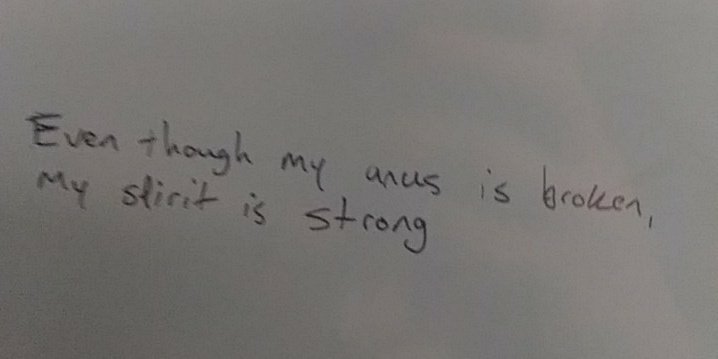 Even though my anus is broken,
My slirit is strong